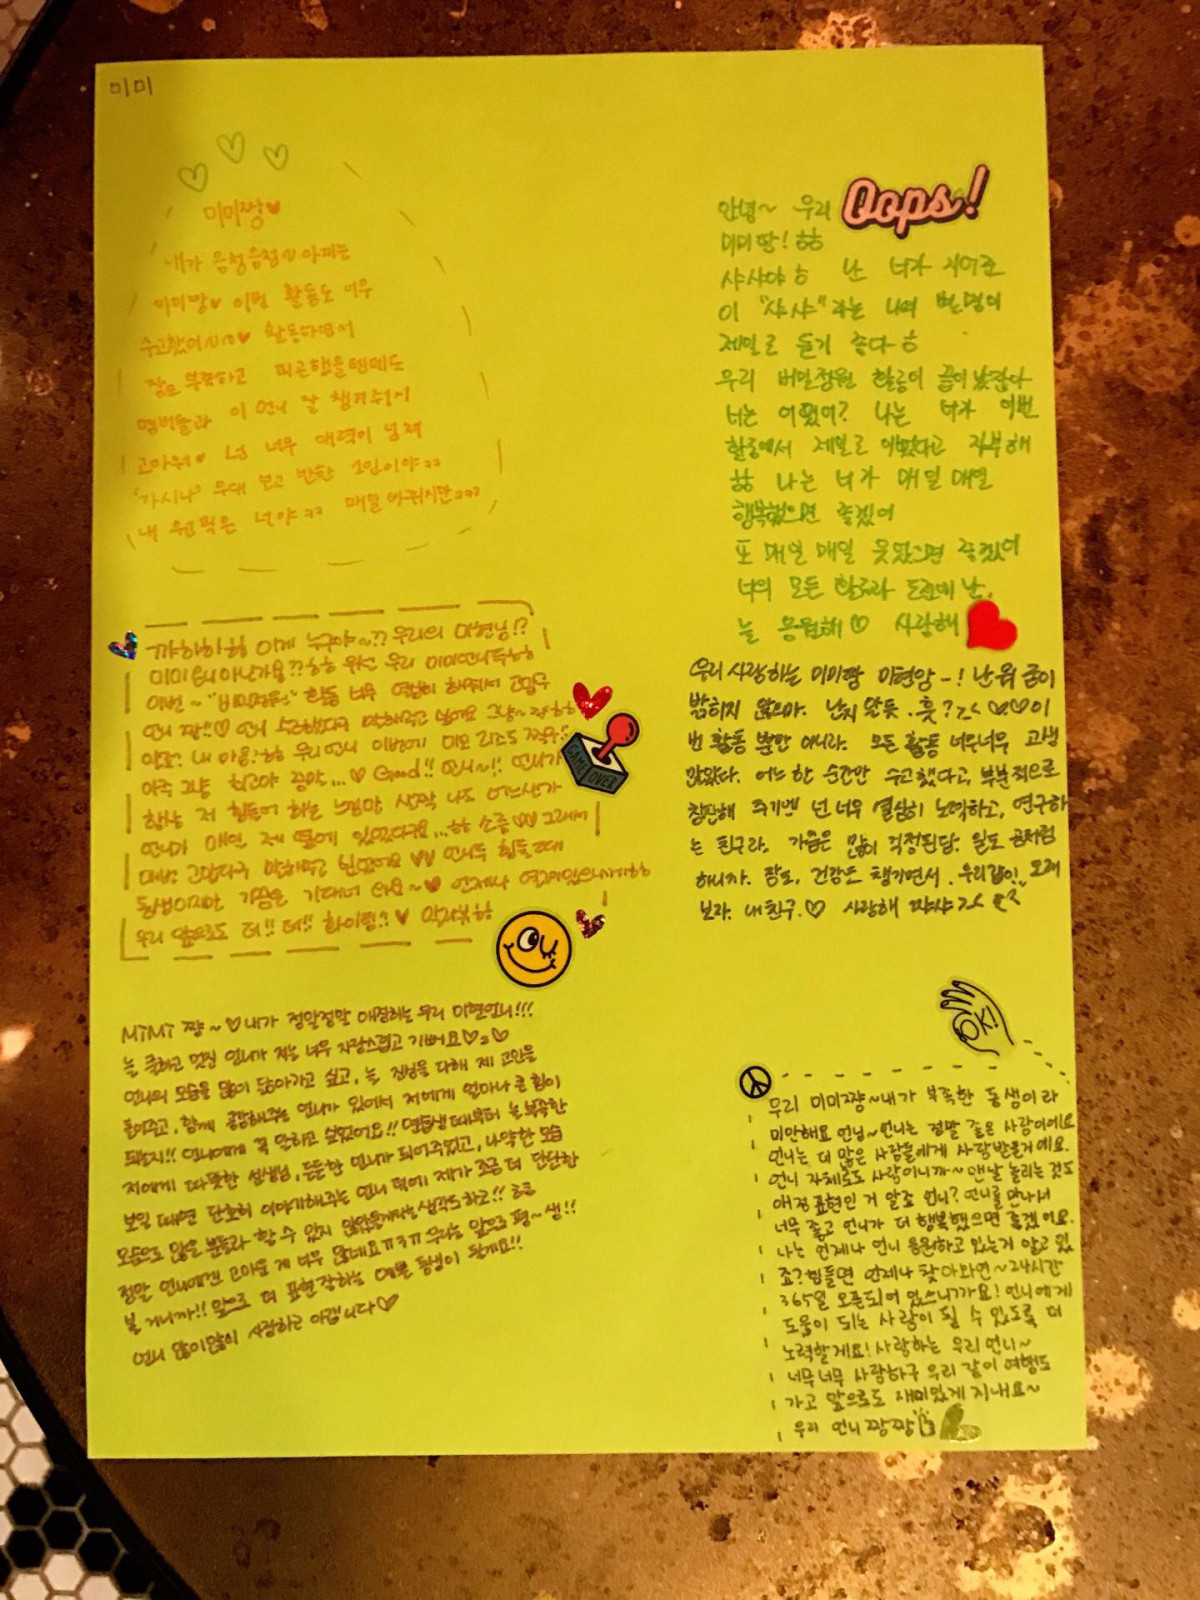 미미
미미짱♥
내가 음청음청 아끼는
미미짱♥ 이번 활동도 너무
수고했어 ♥ 활동하면서
잠도 부족하고 피곤했을텐데도
멤버들과 이 언니 잘 챙겨줘서
고마워♥ 넌 너무 매력이 넘쳐
"가시나" 무대 보고 반한 1인이야ㅋㅋ
내 원픽은 너야ㅋㅋ 매일 바뀌지만ㅋㅋㅋ
까하하핳 이게 누구야~?? 우리의 미현님!?
미미 언니 아닌가요??ㅎㅎ 우선 우리 미미언니두ㅎㅎ
이번~ 활동 너무 열심히 해줘서 고마우
언니 짱!!♡ 언니 수고했다구 말해주고 싶어요 그냥~
알죠? 내 마음?ㅎㅎ 우리언니 이번에
아주 그냥 최고야 증말...♡ Good!! 언니~!! 언니가
항상 저 힘들어 하는 느낌만 살짝 나도 어느샌가
언니가 매일 제 옆에 있었다구요...ㅎㅎ 그래서
매번 고맙다구 말해주고 싶었어요 ♡♡ 언니두 힘들때
동생이지만 가끔은 기대어 줘요~♥ 언제나 여기있으니께ㅎㅎ
우리 앞으로도 더!! 더!! 화이팅!!♥
MiMi 쨩~♡ 내가 정말정말 애정하는 우리 미현언니!!!
늘 착하고 멋진 언니가 저는 너무 자랑스럽고 기뻐요♡
언니의 모습을 많이 닮아가고 싶고, 늘 진심을 다해 제 고민을
들어주고, 함께 공감해주는 언니가 있어서 저에게 얼마나 큰 힘이
되는지!! 언니에게 꼭 말하고 싶었어요!! 연습생때부터 늘 부족한
저에게 따뜻한 선생님, 든든한 언니가 되어주었고, 나약한 모습
보일 때면 단호히 이야기해주는 언니 덕에 제가 조금 더 단단한
모습으로 많은 분들과 할 수 있지 않았을까라는 생각도 하고!!
정말 언니에겐 고마운 게 너무 많네요ㅠㅠ 우리는 앞으로 평~생!!
볼 거니까!! 앞으로 더 표현 잘하는 예쁜 동생이 될게요!!
언니 많이많이 사랑하고 아낍니다♡
Oops!
안녕~ 우리
미미 짱! ㅎㅎ
샤샤야ㅎ 난 너가 지어준
이 "샤샤"라는 나의 별명이
제일로 듣기 좋다ㅎ
우리 비밀정원 활동이 끝이 났잖아
너는 어땠어? 나는 너가 이번
활동에서 제일로 이뻤다고 자부해
ㅎㅎ 나는 너가 매일 매일
행복했으면 좋겠어
또 매일 매일 웃었으면 좋겠어
너의 모든 활동과 도전에 난,
늘 응원해♡ 사랑해
우리 사랑하는 미미짱 미현앙-! 난 뭐 굳이
밝히지 않으마. 난지 알듯. 훗? ♡.♡ 이
번 활동 뿐만 아니라. 모든 활동 너무너무 고생
많았다. 어느 한 순간만 수고했다고, 부분적으로
칭찬해 주기엔 넌 너무 열심히 노력하고, 연구하
는 친구라. 가끔은 많이 걱정된답. 일도 곰처럼
하니까. 잠도, 건강도 챙기면서. 우리같이! 오래
보자. 내친구.♡ 사랑해 샤샤
GAME OVER
우리 미미쨩~내가 부족한 동생이라
미안해요 언닝~언니는 정말 좋은 사람이에요
언니는 더 많은 사람들에게 사랑받을거예요.
언니 자체로도 사랑이니까~맨날 놀리는 것도
애정 표현인 거 알죠 언니? 언니를 만나서
너무 좋고 언니가 더 행복했으면 좋겠어요.
나는 언제나 언니 응원하고 있는거 알고 있
죠? 힘들면 언제나 찾아와연~24시간
365일 오픈되어 있으니까요! 언니에게
도움이 되는 사람이 될 수 있도록 더
노력할게요! 사랑하는 우리 언니~
너무너무 사랑하구 우리 같이 여행도
가고 앞으로도 재미있게 지내요~
우리 언니 짱짱